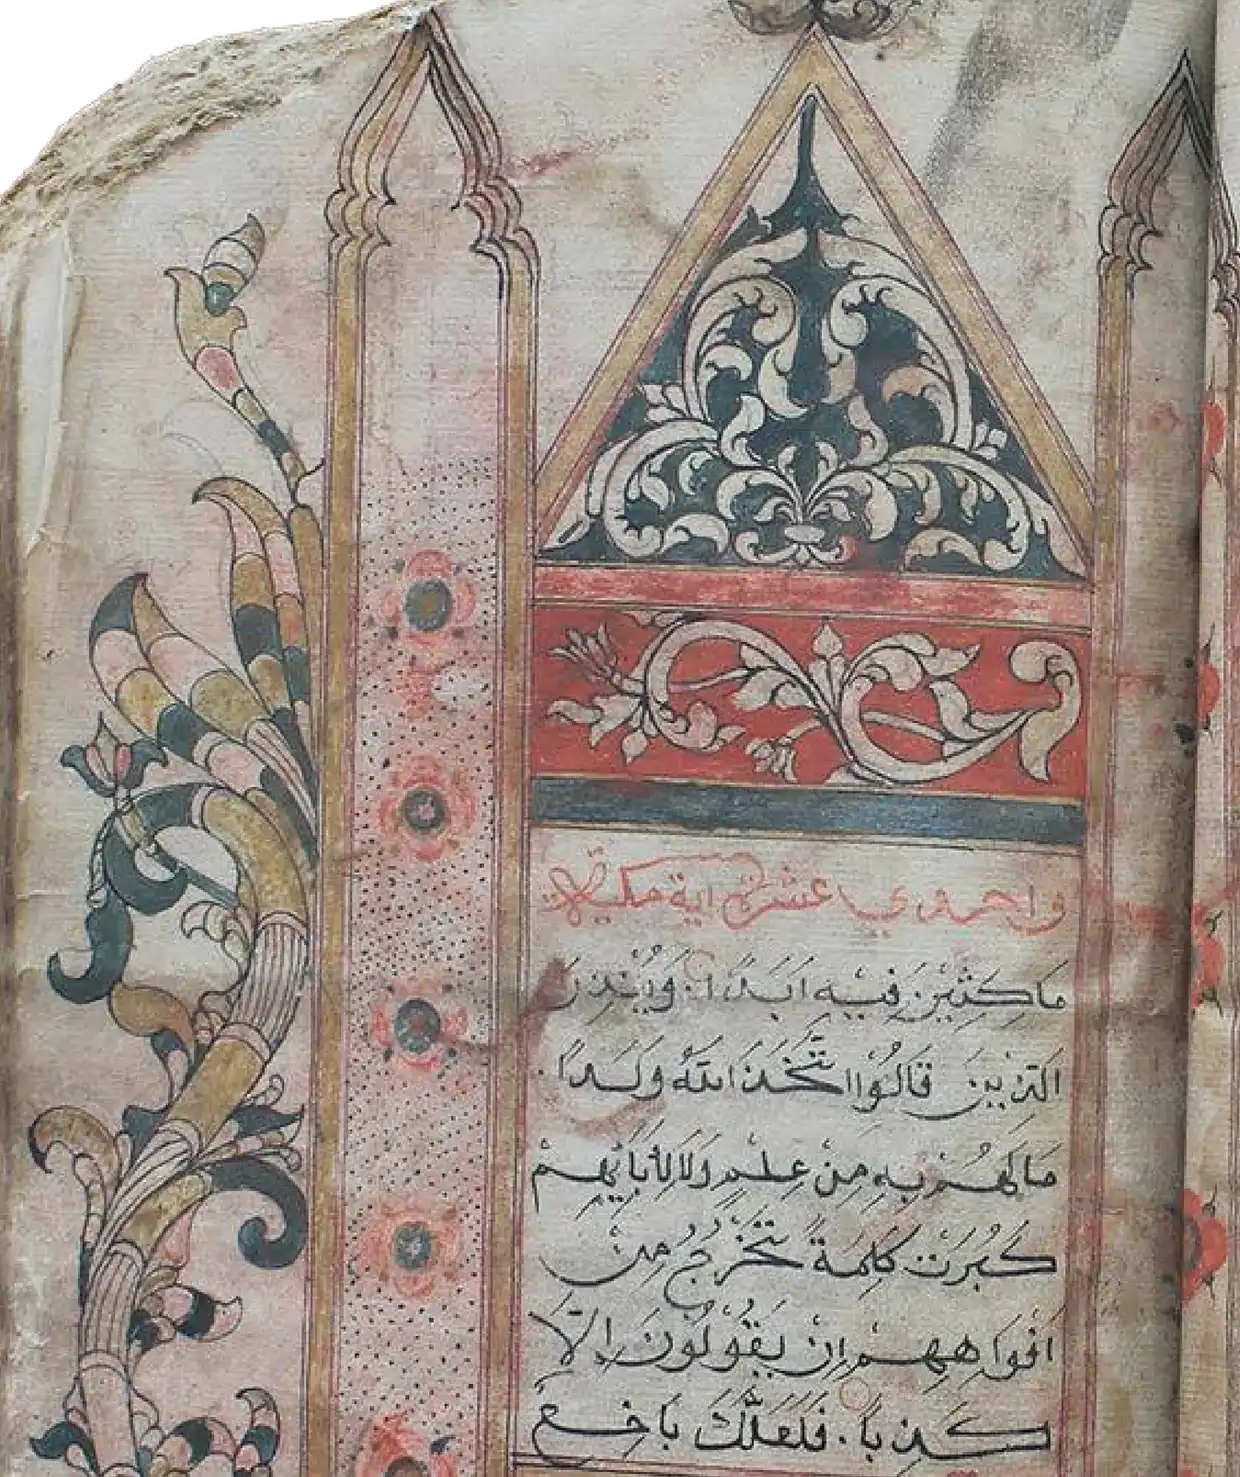 واحدي عشرة اية مكية
مَاكِثِيْنَ فِيْهِ اَبَدًا. وَيُنْذِرَ
الَّذِيْنَ قَالُوْا اتَّخَذَ اللّٰهُ وَلَدًا.
مَالَهُمْ بِهٖ مِنْ عِلْمٍ وَلَا لِأٰبَآئِهِمْ
كَبُرَتْ كَلِمَةً تَخْرُجُ مِنْ
اَفْوَاهِهِمْ اِنْ يَقُوْلُوْنَ اِلَّا
كَذِبًا. فَلَعَلَّكَ بَاخِعٌ